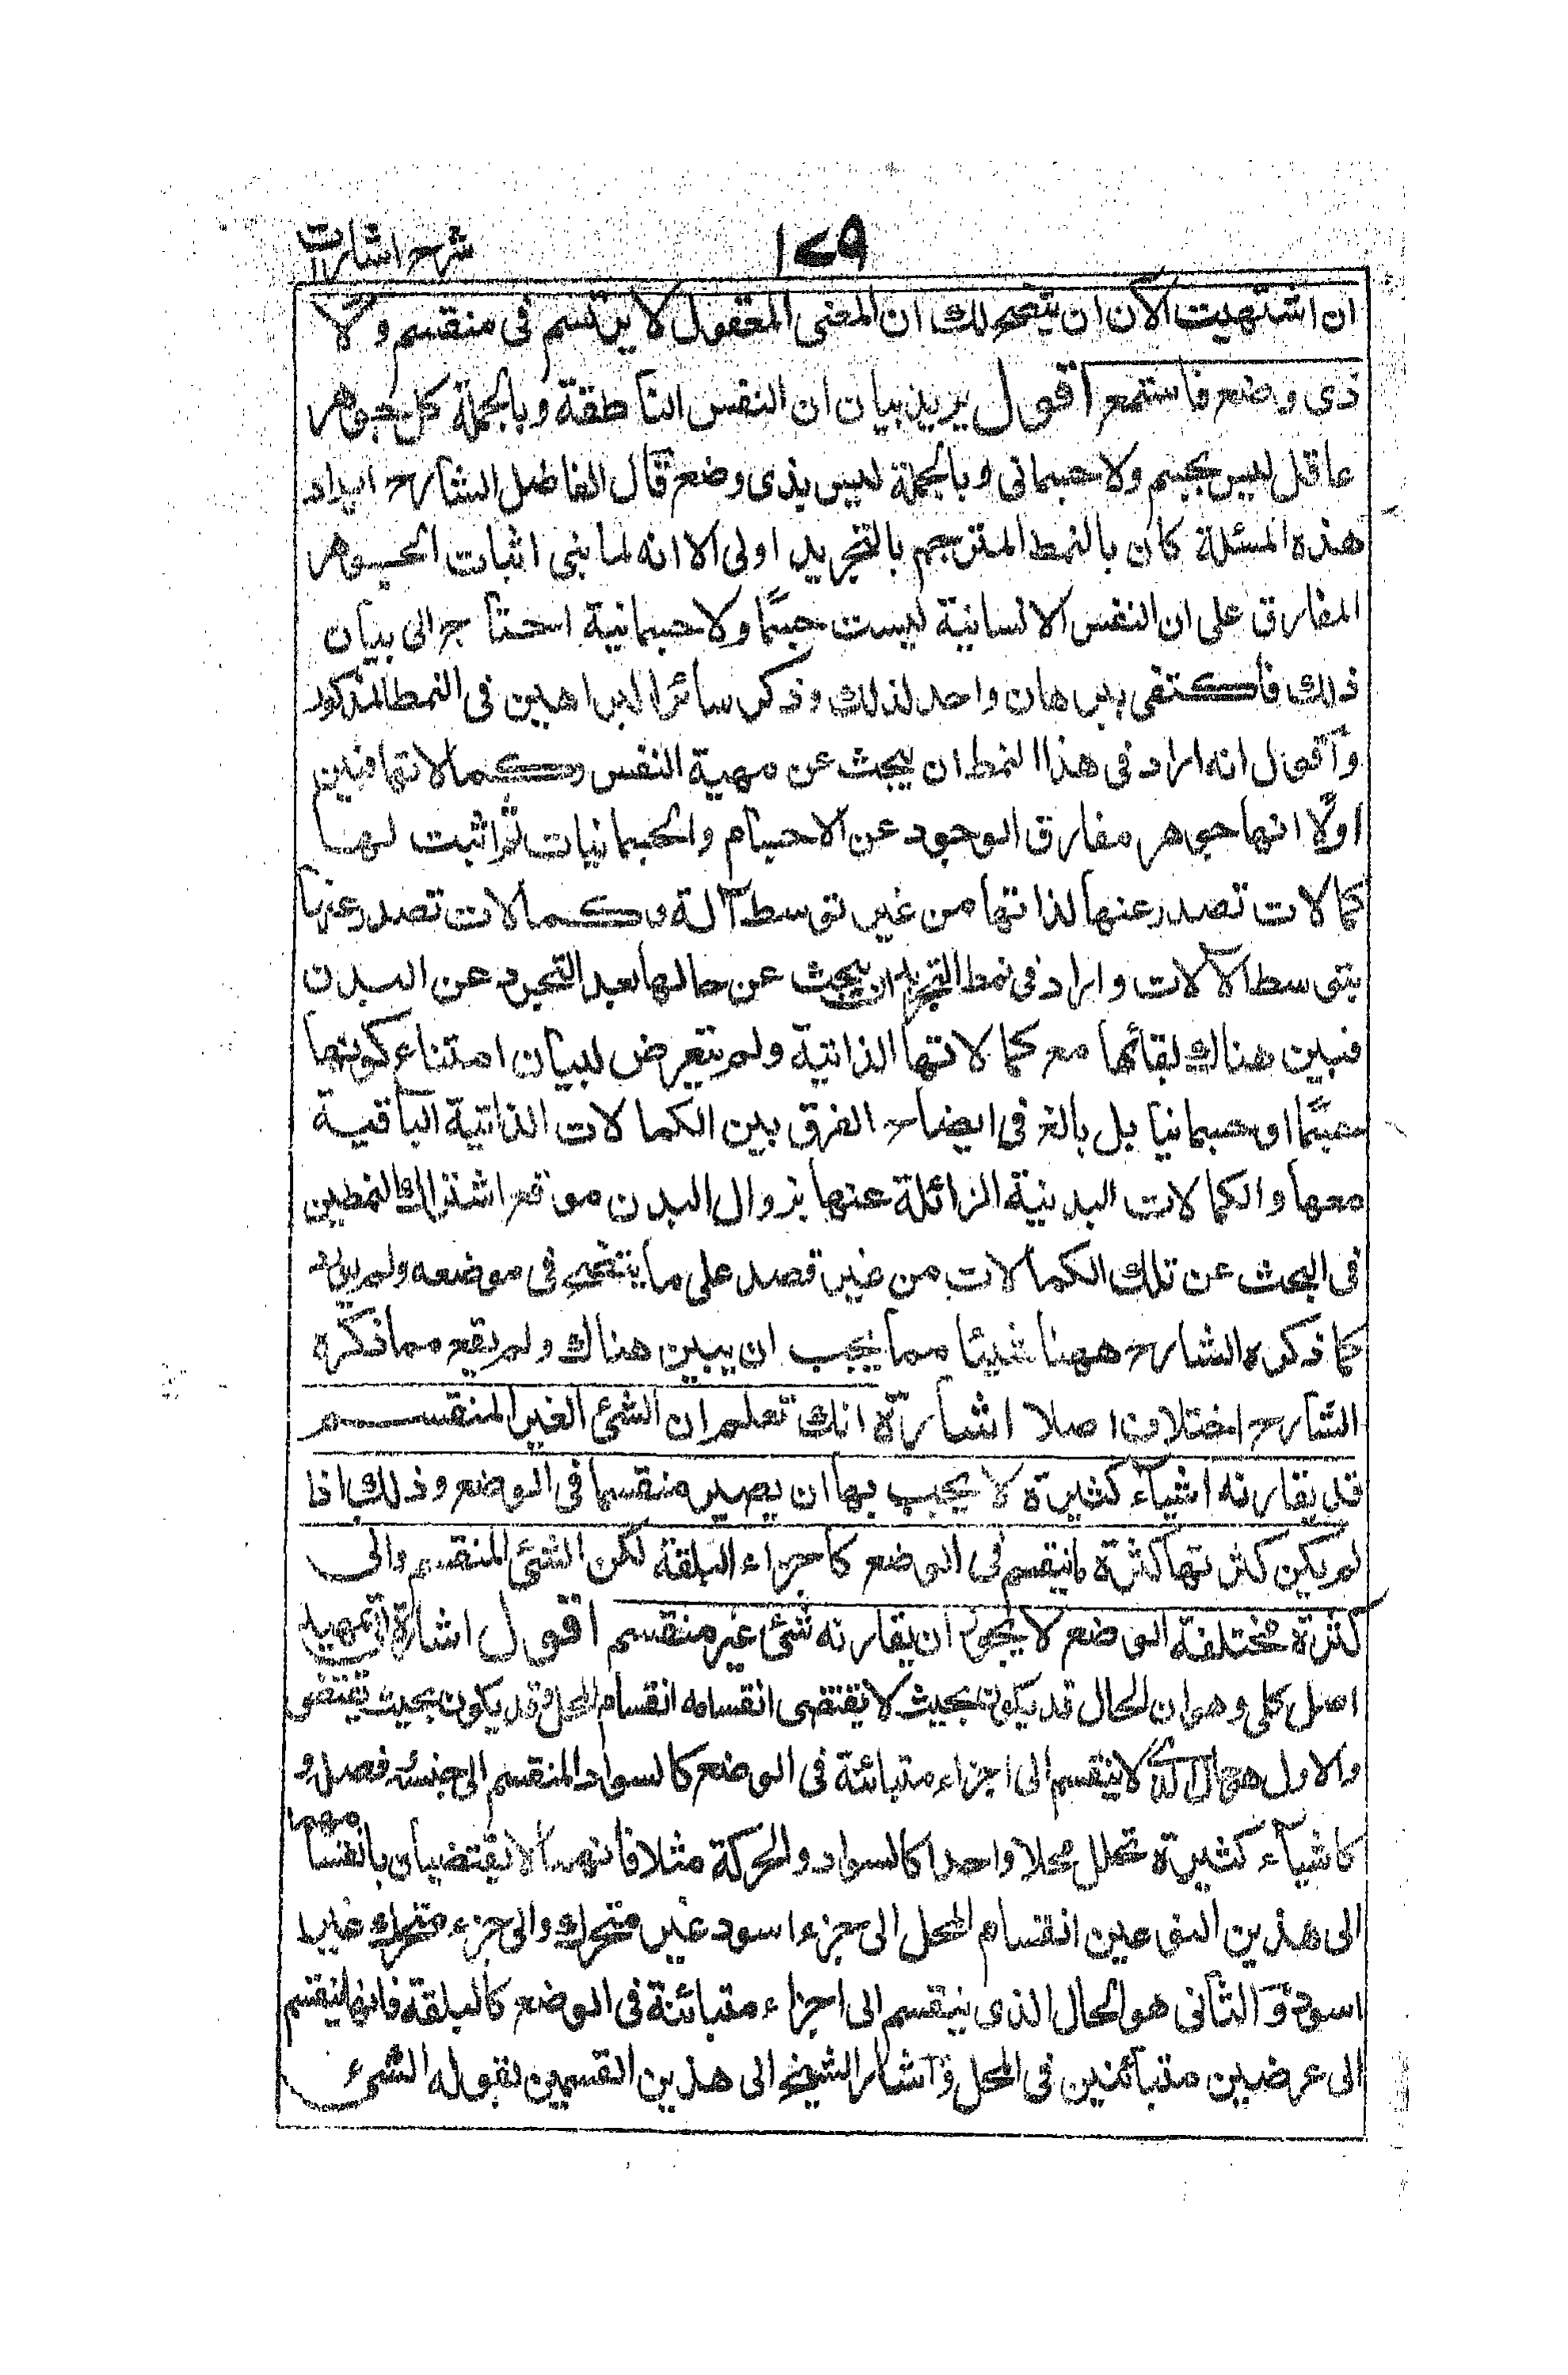 شرح اشارات
١٢٩
ان اشتهيت الآن ان يتضح لك ان المعنى المعقول لا يرتسم فى منقسم ولا
ذى وضع فاستمع اقول يريد بيان ان النفس الناطقة وبالجملة كل جوهر
عاقل ليس بجسم ولا جسمانى وبالجملة ليس بذى وضع قال الفاضل الشارح ايراد
هذه المسئلة كان بالنمط المترجم بالتجريد اولى الا انه لما بنى اثبات الجوهر
المفارق على ان النفس الانسانية ليست جسمًا ولا جسمانية احتاج الى بيان
ذلك فاكتفى ببرهان واحد لذلك وذكر سائر البراهين فى النمط المذكور
وأقول انه اراد فى هذا النمط ان يبحث عن مهية النفس وكمالاتها فبين
اولًا انها جوهر مفارق الوجود عن الاجسام والجسمانيات ثم اثبت لها
كمالات تصدر عنها لذاتها من غير توسط آلة وكمالات تصدر عنها
بتوسط الآلات واراد فى نمط التجريد ان يبحث عن حالها بعد التجرد عن البدن
فبين هناك بقائها مع كمالاتها الذاتية ولم يتعرض لبيان امتناع كونها
جسمًا او جسمانيا بل بالغ فى ايضاح الفرق بين الكمالات الذاتية الباقية
معها والكمالات البدنية الزائلة عنها بزوال البدن موقع اشتراك النمطين
فى البحث عن تلك الكمالات من غير قصد على ما يتضح فى موضعه ولم يورد
كما ذكره الشارح ههنا شيئا مما يجب ان يبين هناك ولم يقع مما ذكره
الشارح اختلاف اصلا اشارة انك تعلم ان الشئ الغير المنقسم
قد يقارنه اشياء كثيرة لا يجب بها ان يصير منقسما فى الوضع وذلك اذا
لم يكن كثرتها كثرة ما ينقسم فى الوضع كاجزاء البلقة لكن الشئ المنقسم والى
كثرة مختلفة الوضع لا يجوز ان يقارنه شئ غير منقسم اقول اشارة الى تمهيد
اصل كلى وهو ان الحال قد يكون بحيث لا يقتضى انقسامه انقسام المحل وقد يكون بحيث يقتضى
والاول هو الحال الذى لا ينقسم الى اجزاء متبائنة فى الوضع كالسواد المنقسم الى جنسه وفصله و
كاشياء كثيرة تحل محلا واحدا كالسواد والحركة مثلا فانهما لا يقتضيان بانقسامهما
الى هذين النوعين انقسام المحل الى جزء اسود غير متحرك والى جزء متحرك غير
اسود وَالثانى هو الحال الذى ينقسم الى اجزاء متبائنة فى الوضع كالبلقة فانها تنقسم
الى عرضين متبائنين فى المحل وَاشار الشيخ الى هذين القسمين بقوله الشئ